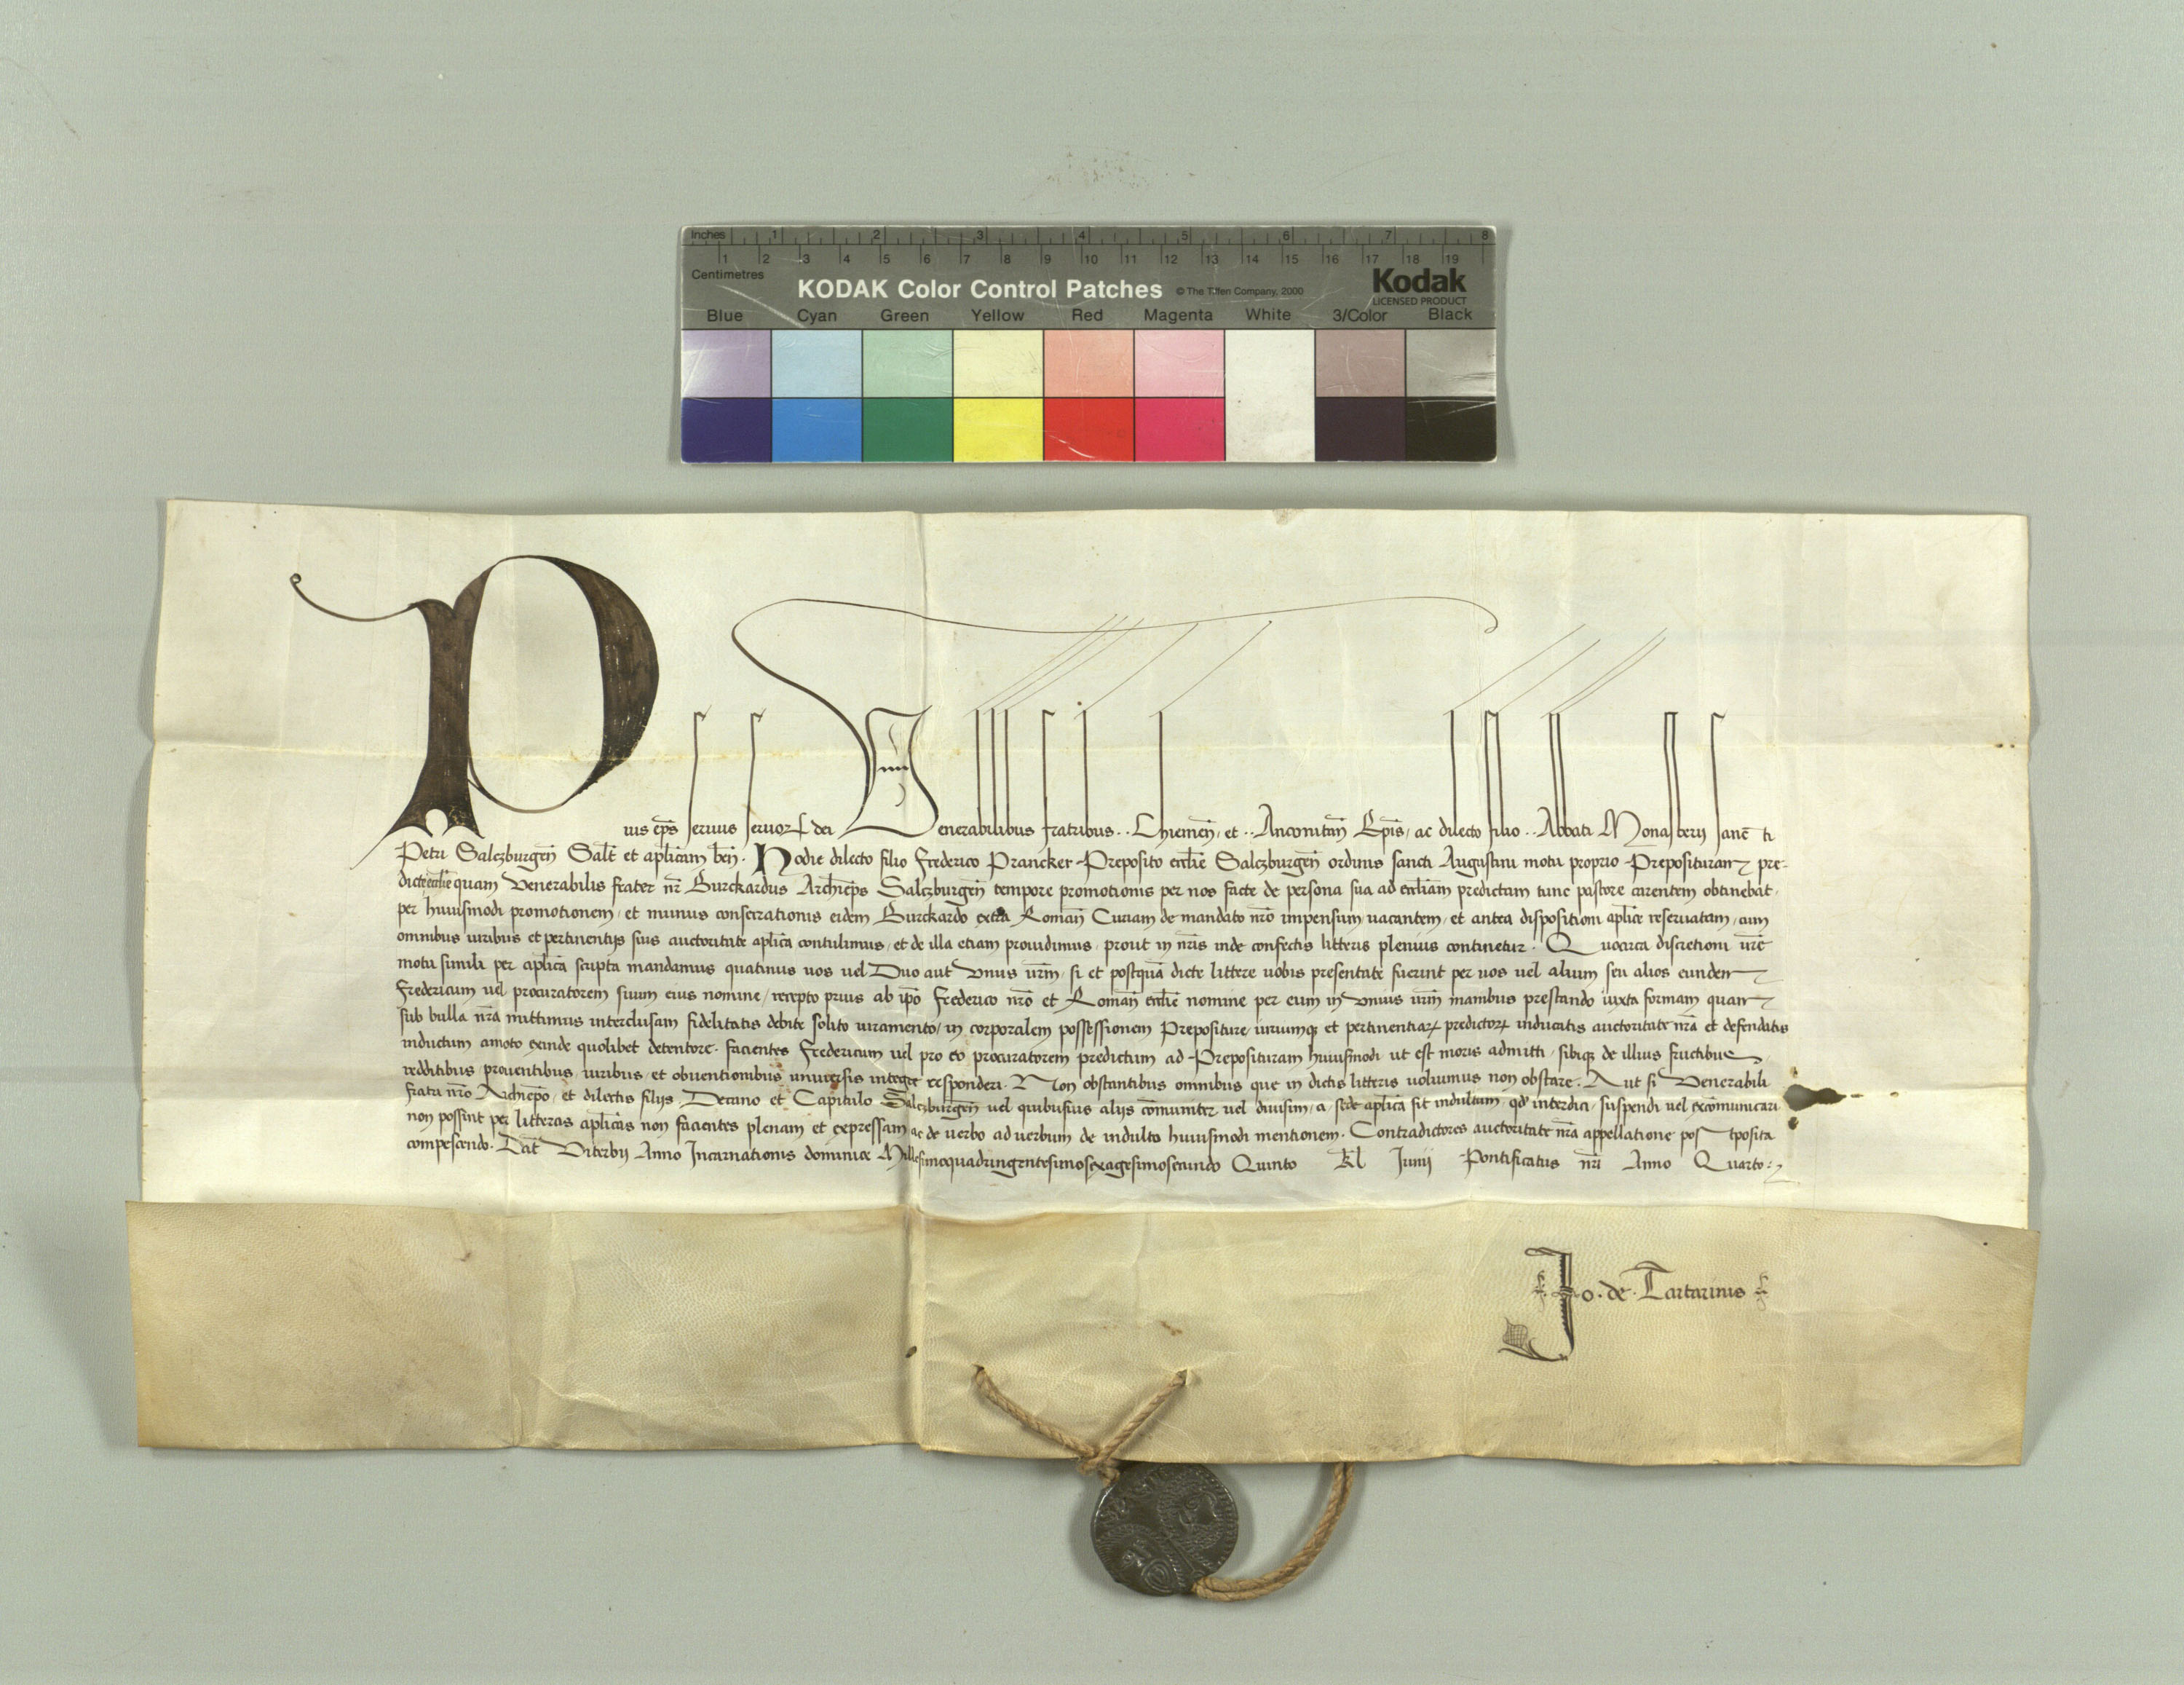 Inches 1 2 3 4 5 6 7 8
1 2 3 4 5 6 7 8 9 10 11 12 13 14 15 16 17 18 19
Centimetres
KODAK Color Control Patches © The Tiffen Company, 2000 Kodak
LICENSED PRODUCT
Blue Cyan Green Yellow Red Magenta White 3/Color Black
Pius ep̄s seruus seruoꝝ dei Venerabilibus fratribus .. Chiemen̄, et .. Anconitan̄ Ep̄is, ac dilecto filio .. Abbati Monasterij sanc̄ti
Petri Salczburgen̄ Salt̄ et aplicam ben̄. Hodie dilecto filio Frederico Prancker Preposito eccl̄ie Salczburgen̄ ordinis sancti Augustini motu proprio Preposituram pre-
dicte eccl̄ie quam Venerabilis frater nr̄ Burckardus Archiep̄s Salczburgen̄ tempore promotionis per nos facte de persona sua ad eccl̄iam predictam tunc pastore carentem obtinebat,
per huiusmodi promotionem, et munus consecrationis eidem Burckardo extra Roman̄ Curiam de mandato nr̄o impensum, uacantem, et antea dispositioni aplice reseruatam, cum
omnibus iuribus et pertinentijs suis auctoritate aplica contulimus, et de illa etiam prouidimus, prout in nr̄is inde confectis litteris plenius continetur. Quocirca discretioni ur̄e
motu simili per aplica scripta mandamus quatinus uos uel Duo aut Vnus ur̄m, si et postquā dicte littere uobis presentate fuerint per uos uel alium seu alios eundem
Fredericum uel procuratorem suum eius nomine, recepto prius ab ip̄o Frederico nr̄o et Roman̄ eccl̄ie nomine per eum in Vnius ur̄m manibus prestando iuxta formam quam
sub bulla nr̄a mittimus interclusam fidelitatis debite solito iuramento, in corporalem possessionem Prepositure, iuriumqꝫ et pertinentiaꝝ predictoꝝ inducatis auctoritate nr̄a et defendatis
inductum amoto exinde quolibet detentore. facientes Fredericum uel pro eo procuratorem predictum ad Preposituram huiusmodi ut est moris admitti, sibiqꝫ de illius fructibus,
redditibus, prouentibus, iuribus, et obuentionibus uniuersis integre responderi. Non obstantibus omnibus que in dictis litteris uolumus non obstare. Aut si Venerabili
fratri nr̄o Archiep̄o, et dilectis filijs Decano et Capitulo Salczburgen̄ uel quibusuis alijs cōmuniter uel diuisim, a sede aplica sit indultum, qd̄ interdici, suspendi uel excōmunicari
non possint per litteras aplicas non facientes plenam et expressam ac de uerbo ad uerbum de indulto huiusmodi mentionem. Contradictores auctoritate nr̄a appellatione postposita
compescendo. Dat̄ Viterbij Anno Incarnationis dominice Millesimoquadringentesimosexagesimosecundo Quinto Kl Junij Pontificatus nr̄i Anno Quarto
Jo. de. Tartarinis